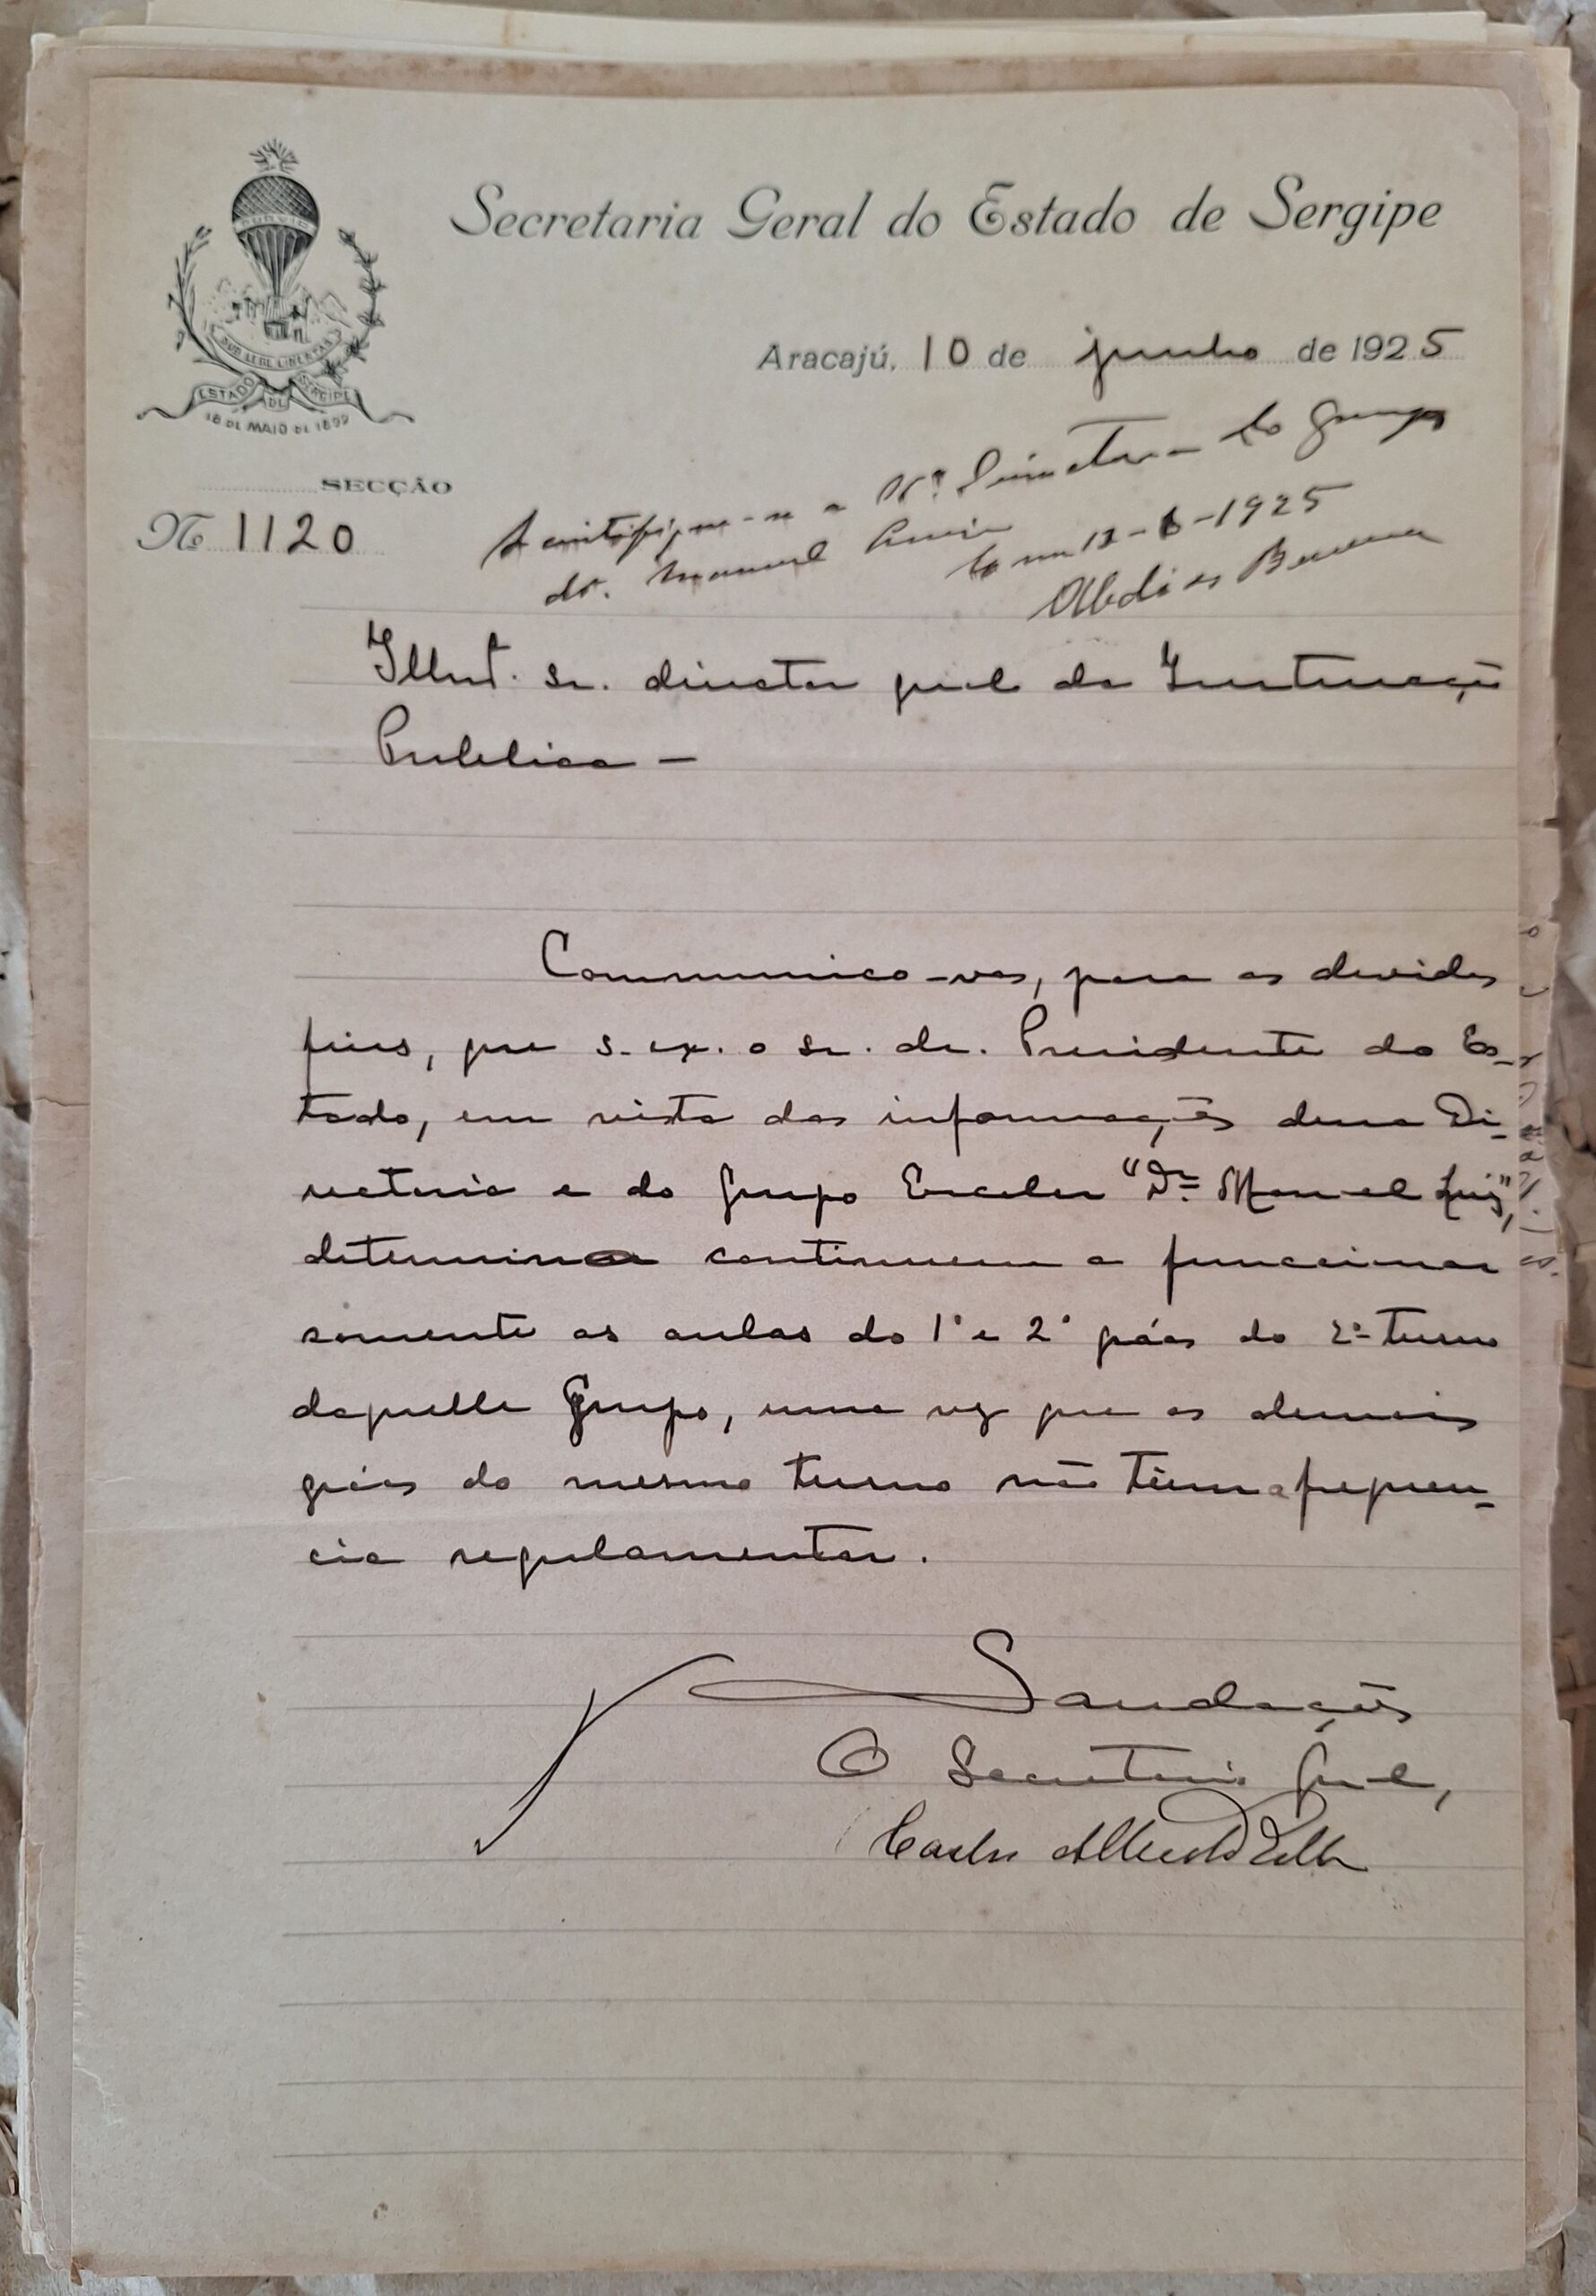 Secretaria Geral do Estado de Sergipe
SUB LEGE LIBERTAS
ESTADO DE SERGIPE
18 DE MAIO DE 1892
Aracajú, 10 de junho de 1925
SECÇÃO
Nº 1120
Scientifique-se a Directora do Grupo
dr. Manuel Luis
Em 12-6-1925
Illmº. sr. director geral da Instrucção
Publica —
Communico-vos, para os devidos
fins, que s. ex. o sr. dr. Presidente do Es-
tado, em vista das informações dessa Di-
rectoria e do Grupo Escolar "Dr. Manoel Luiz",
determina continuem a funccionar
somente as aulas do 1º e 2º gráos do 2º turno
daquelle Grupo, uma vez que os demais
gráos do mesmo turno não têem a frequen-
cia regulamentar.
Saudações
O Secretario Geral,
Carlos Alberto Rolla